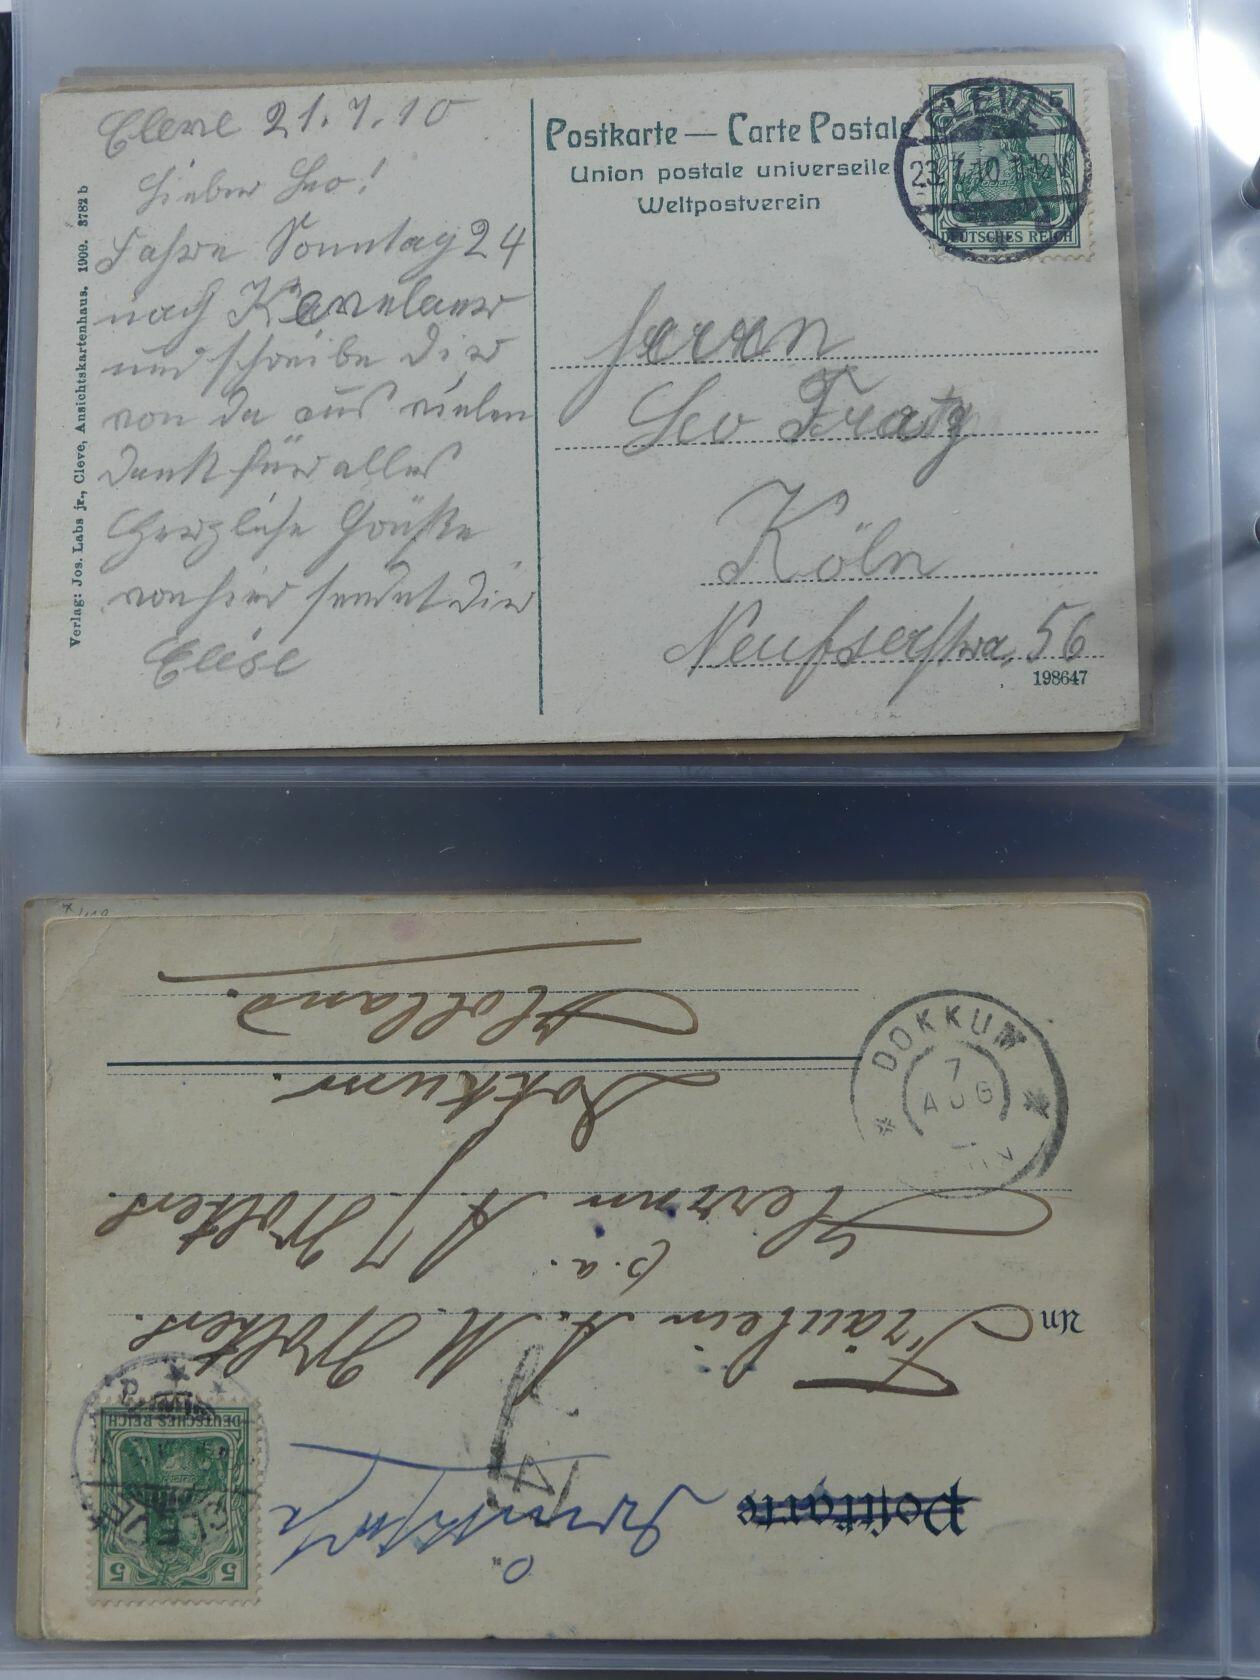 Cleve 21.7.10
Lieber Leo!
Fahre Sonntag 24
nach Kevelaer
und schreibe Dir
von da aus vielen
Dank für alles
Herzliche Grüße
von hier sendet Dir
Elise
Verlag: Jos. Labs jr., Cleve, Ansichtskartenhaus. 1909. 3782 b
Postkarte — Carte Postale
Union postale universelle
Weltpostverein
CLEVE
23.7.10.11-12V.
5 5
DEUTSCHES REICH
Herrn
Leo Fratz
Köln
Neußerstra. 56
198647
Postkarte
Drucksache
5 5
DEUTSCHES REICH
An
Fräulein A. M. Wolters.
p.a.
Herrn A. J. Wolters.
Dokkum.
Holland.
DOKKUM
7
AUG